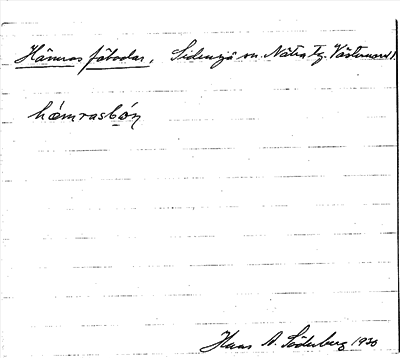 Hämras fäbodar, Sidensjö sn. Nätra tg. Västernorrl.
hæmrasbǿn
Hans A. Söderberg 1930